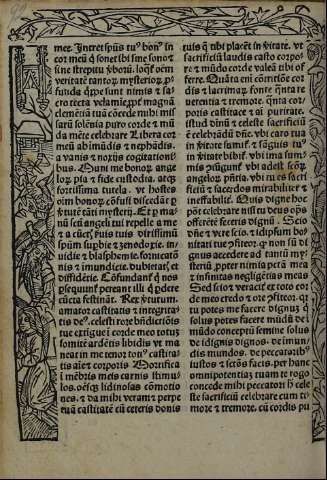 mee. Intret spūs tu⁹ bon⁹ in
cor meū q̄ sonet ibi sine sono &
sine strepitu v̄borū. loqt̄ oēm
veritatē tantoꝝ mysterioꝝ. p̄
funda qͥppe sunt nimis & sa
cro tecta velamīe. ꝑpc̄ magnā
clementiā tuā cōcede mihi mis
saꝝ solēnia puro corde & mū
da mēte celebrare Libera cor
meū ab imūdis & nephādis.
a vanis & noxijs cogitationi
bus. Muni me bonoꝝ ange
loꝝ pia & fide custodia. atqꝫ
fortissima tutela. vt hostes
oīm bonoꝝ. cōfusi discedāt ꝑ
v̄tutē tāti mysterij. Et ꝑ ma
nū scti angeli tui repelle a me
a cūctꝭ suis tuis dirissimū
spūm supbie & zenodoxie. in
vidie & blasphemie. fornicatō
nis & immundicie. dubietatꝭ &
diffidētie. Cōfundant̄ q̄ nos
psequunt̄ pereant illi q̄ pdere
cūcta festināt. Rex v̄tutum.
amator castitatis & integrita
tis de⁹. celesti rore bn̄dictiōis
tue extigue i corde meo totuꝫ
fomitē ardētis libidis vt ma
neat in me tenor tot⁹ castita
tis aīe & corporis Mortifica
ī mēbris meis carnis stimu
los. oēsqꝫ lidinosas cōmotio
nes. & da mihi veram & perpe
tuā castitatē cū ceteris donis
tuis q̄ tibi placēt in v̄itate. vt
sacrificiū laudis casto corpo
re & mūdo corde valeā tibi of
ferre. Quāta eni cōtritiōe cor
dis & lacrimaꝝ fonte q̄nta re
uerentia & tremore. q̄nta cor
poris castitate & ai puritate.
istud diuinū & celeste sacrificiū
ē celebrādū dn̄e. vbi caro tua
in v̄itate sumit̄. & sanguis tu⁹
in v̄itate bibit̄. vbi ima sum
mis iūgunt̄ vbi adest scōꝝ
angeloꝝ pn̄tia. vbi tu es sacri
ficiū & sacerdos mirabilit̄ &
ineffabilit̄. Quis digne hoc
pōt celebrare nisi tu deus op̄s
offerētē feceris dignū. Scio
dn̄e & vere scio. & idipsum bo
nitati tue 9fiteor. q̄r non sū di
gnus accedere ad tantū my
steriū ꝑpter nimia pctā mea
& infinitas negligētias meas
Sed scio & veracit̄ ex toto cor
de meo credo & ore 9fiteor. q̄r
tu potes me facere dignuꝫ q̄
solus potes facere mūdū de ī
mūdo conceptū semine solus
de idignis dignos. de imun
dis mundos. de peccatoribꝰ
iustos & sctōs facis. per hanc
omnipotentiā tuam te rogo
concede mihi peccatori h̄ cele
ste sacrificiū celebrare cum ti
more & tremore. cū cordis pu